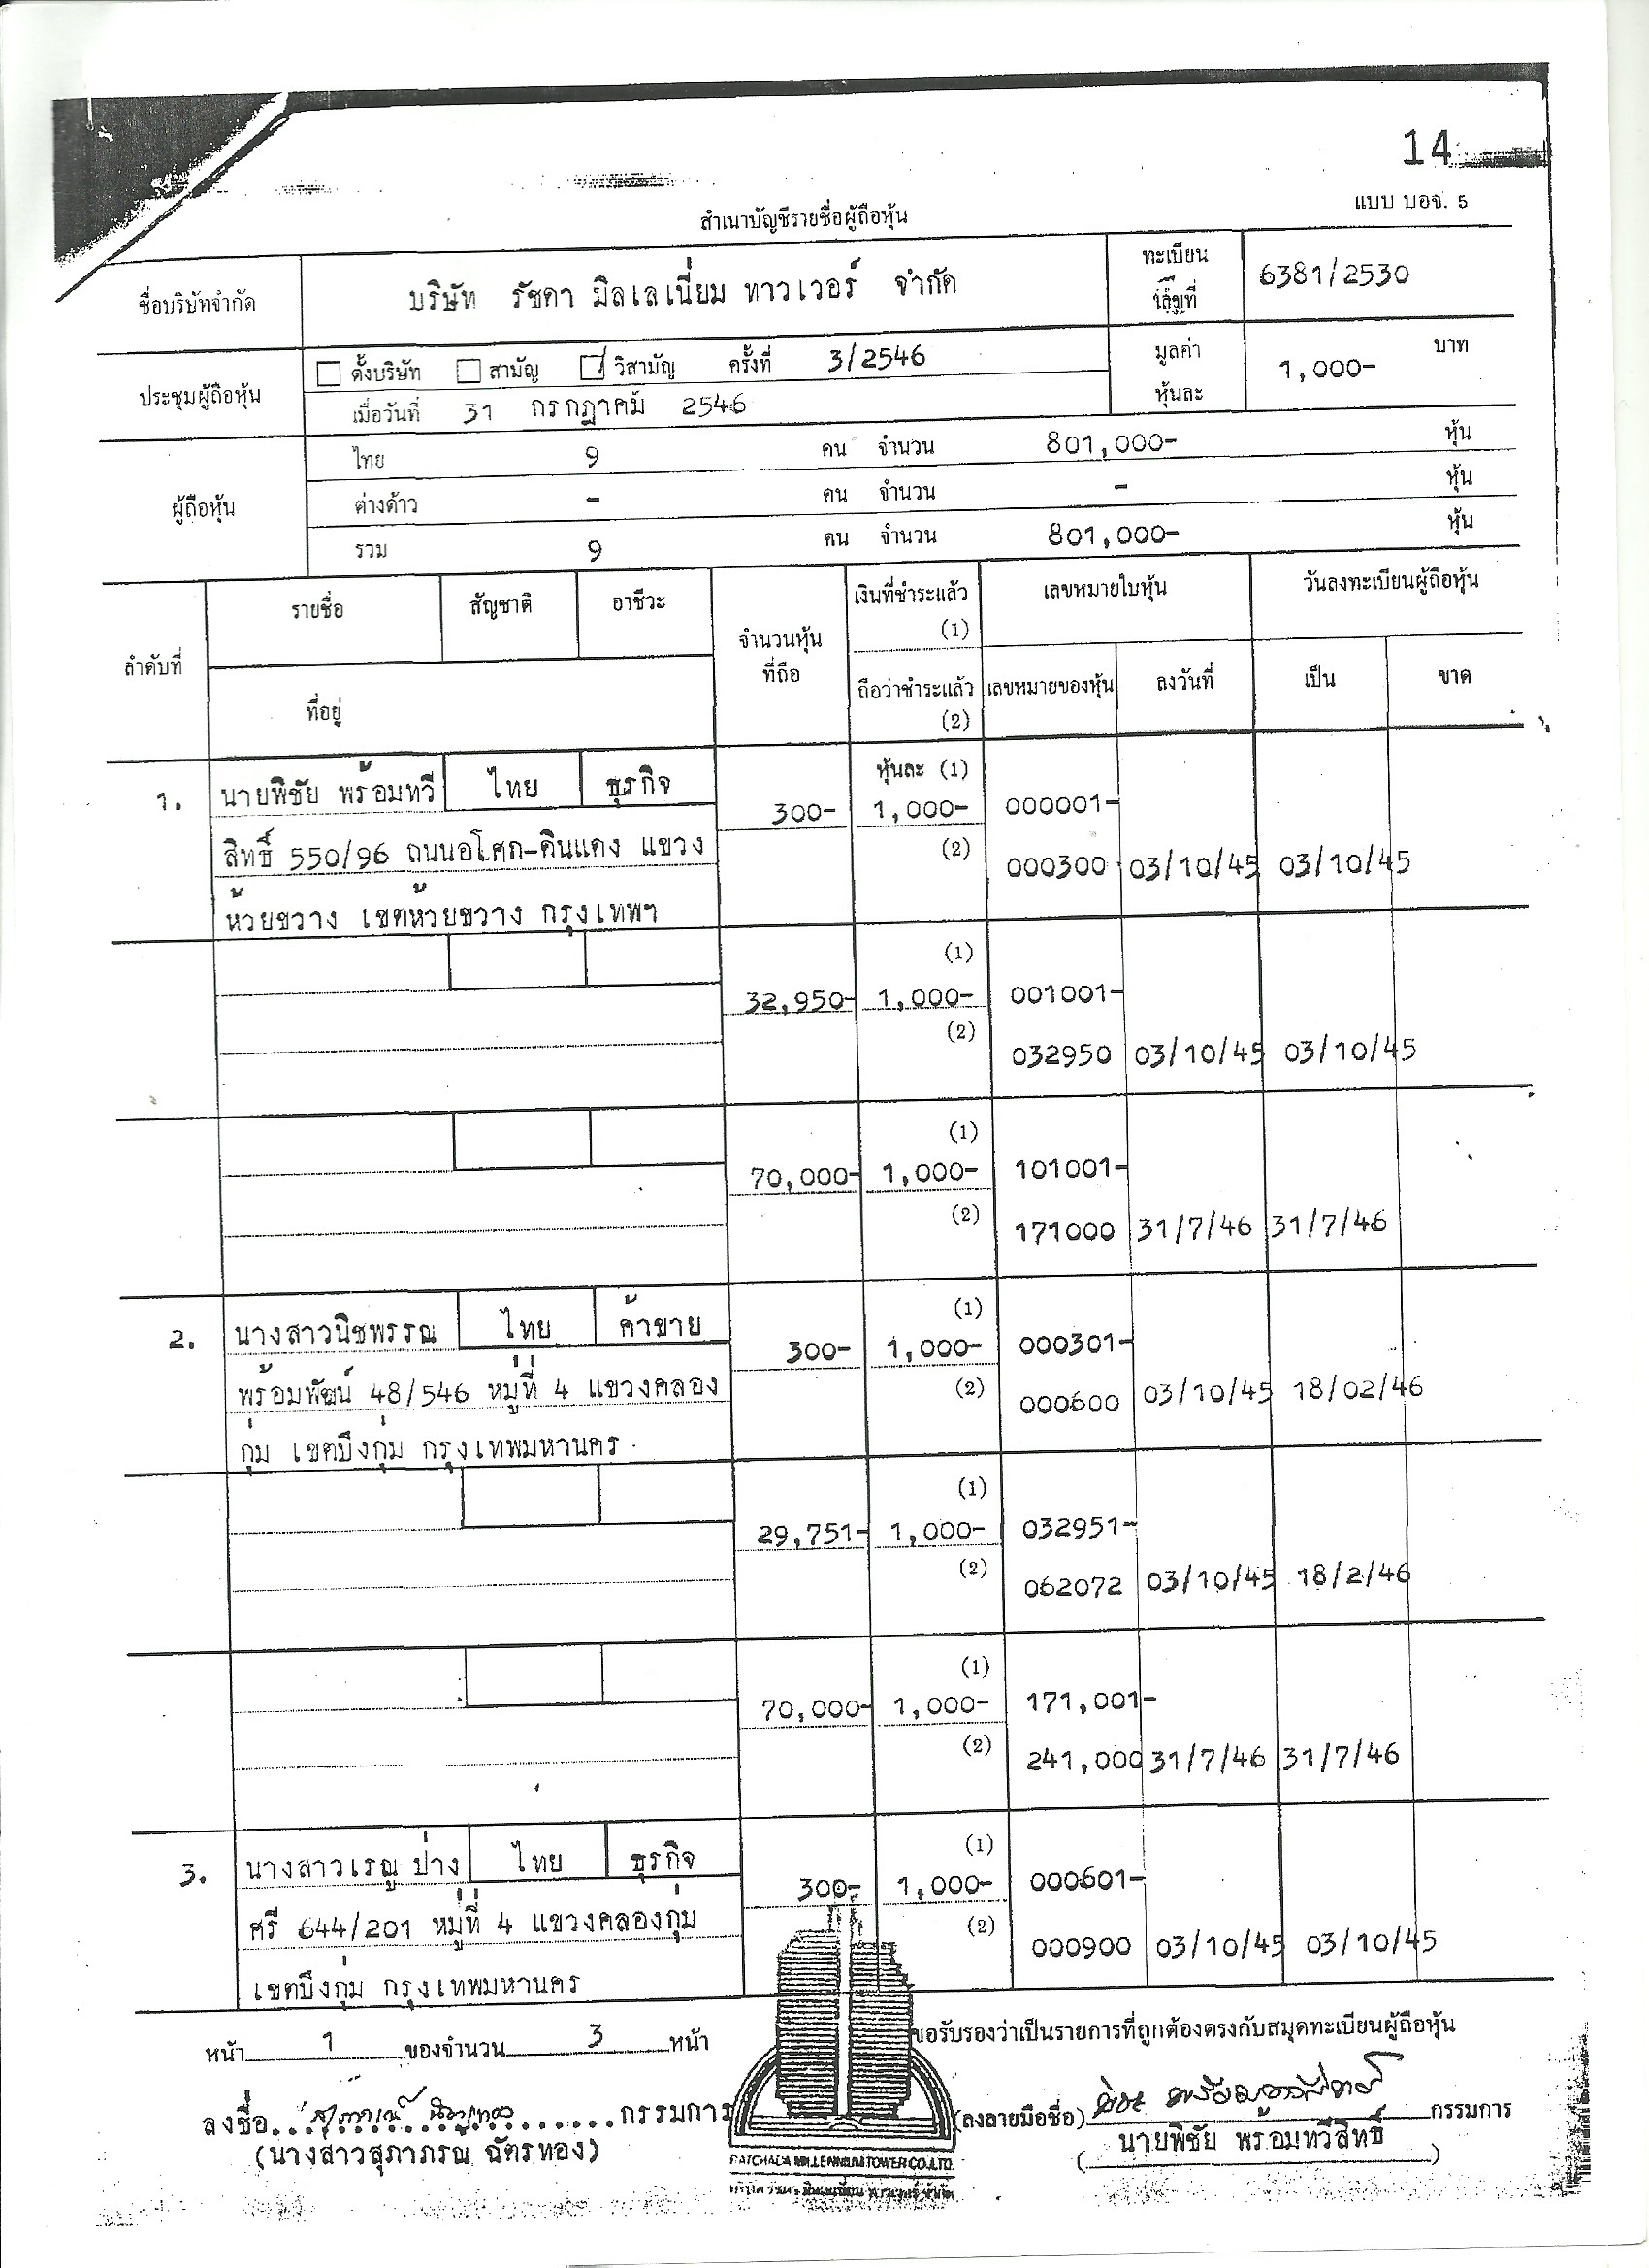 14
แบบ บอจ. 5
สำเนาบัญชีรายชื่อผู้ถือหุ้น
ชื่อบริษัทจำกัด บริษัท รัชดา มิลเลเนี่ยม ทาวเวอร์ จำกัด ทะเบียนเลขที่ 6381/2530
ประชุมผู้ถือหุ้น ตั้งบริษัท สามัญ วิสามัญ ครั้งที่ 3/2546 มูลค่าหุ้นละ 1,000- บาท
เมื่อวันที่ 31 กรกฎาคม 2546
ผู้ถือหุ้น
ไทย 9 คน จำนวน 801,000- หุ้น
ต่างด้าว - คน จำนวน - หุ้น
รวม 9 คน จำนวน 801,000- หุ้น
ลำดับที่ รายชื่อ สัญชาติ อาชีวะ จำนวนหุ้นที่ถือ เงินที่ชำระแล้ว (1) เลขหมายใบหุ้น วันลงทะเบียนผู้ถือหุ้น
ที่อยู่ ถือว่าชำระแล้ว (2) เลขหมายของหุ้น ลงวันที่ เป็น ขาด
หุ้นละ (1)
1. นายพิชัย พร้อมทวี ไทย ธุรกิจ 300- 1,000- 000001-
สิทธิ์ 550/96 ถนนอโศก-ดินแดง แขวง (2) 000300 03/10/45 03/10/45
ห้วยขวาง เขตห้วยขวาง กรุงเทพฯ
(1)
32,950- 1,000- 001001-
(2)
032950 03/10/45 03/10/45
(1)
70,000- 1,000- 101001-
(2)
171000 31/7/46 31/7/46
(1)
2. นางสาวนิชพรรณ ไทย ค้าขาย 300- 1,000- 000301-
พร้อมพัฒน์ 48/546 หมู่ที่ 4 แขวงคลอง (2) 000600 03/10/45 18/02/46
กุ่ม เขตบึงกุ่ม กรุงเทพมหานคร
(1)
29,751- 1,000- 032951-
(2)
062072 03/10/45 18/2/46
(1)
70,000- 1,000- 171,001-
(2)
241,000 31/7/46 31/7/46
(1)
3. นางสาวเรณู ปาง ไทย ธุรกิจ 300- 1,000- 000601-
ศรี 644/201 หมู่ที่ 4 แขวงคลองกุ่ม (2) 000900 03/10/45 03/10/45
เขตบึงกุ่ม กรุงเทพมหานคร
หน้า 1 ของจำนวน 3 หน้า
ขอรับรองว่าเป็นรายการที่ถูกต้องตรงกับสมุดทะเบียนผู้ถือหุ้น
ลงชื่อ กรรมการ (ลงลายมือชื่อ) กรรมการ
(นางสาวสุภาภรณ์ ฉัตรทอง) (นายพิชัย พร้อมทวีสิทธิ์)
RATCHADA MILLENNIUM TOWER CO.,LTD.